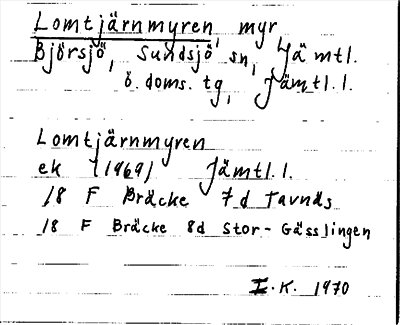 Lomtjärnmyren, myr
Björsjö, Sundsjö sn, Jämtl.
ö. doms. tg, Jämtl. l.
Lomtjärnmyren
ek (1969) Jämtl. l.
18 F Bräcke 7d Tavnäs
18 F Bräcke 8d Stor-Gässlingen
I.K. 1970